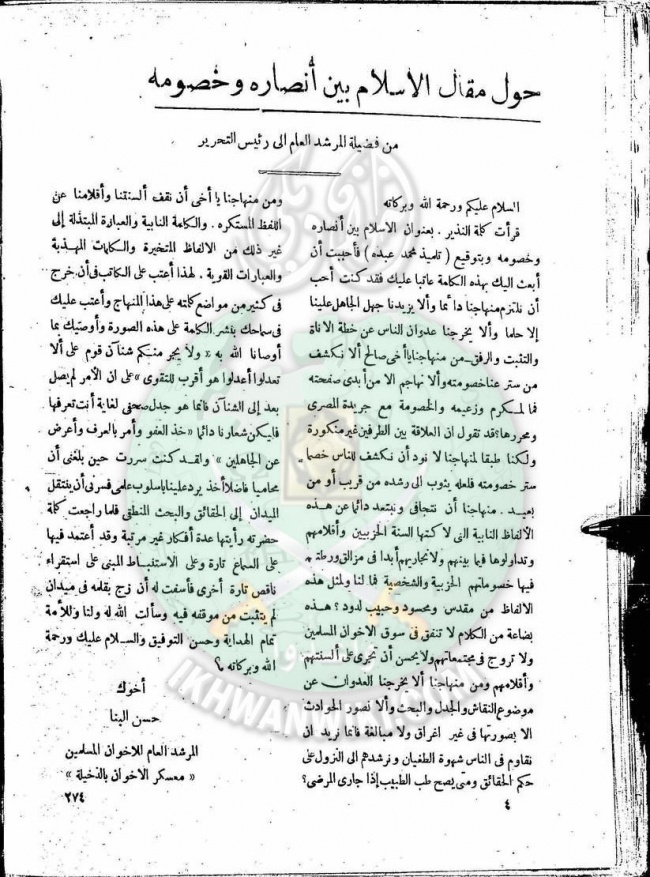 حول مقال الاسلام بين أنصاره وخصومه
من فضيلة المرشد العام الى رئيس التحرير
السلام عليكم ورحمة الله وبركاته
قرأت كلمة النذير . بعنوان الاسلام بين أنصاره
وخصومه وبتوقيع ( تلميذ محمد عبده ) فأحببت أن
أبعث اليك بهذه الكلمة عاتبا عليك فقد كنت أحب
أن نلتزم منهاجنا دائما وألا يزيدنا جهل الجاهل علينا
إلا حلما وألا يخرجنا عدوان الناس عن خطة الاناة
والتثبت والرفق ـ من منهاجنا يا أخى صالح ألا نكشف
من ستر عنا خصومته وألا نهاجم الا من أبدى صفحته
فما لمكرم وزعيمه والخصومة مع جريدة المصرى
ومحررها؟ قد تقول ان العلاقة بين الطرفين غير منكورة
ولكنا طبقا لمنهاجنا لا نود أن نكشف للناس خصما
ستر خصومته فلعله يثوب الى رشده من قريب أو من
بعيد . منهاجنا أن نتجافى ونبتعد دائما عن هذه
الألفاظ النابية التى لاكتها السنة الحزبيين وأقلامهم
وتداولوها فيما بينهم ولا نجاريهم أبدا فى مزالق ورطتهم
فيها خصوماتهم الحزبية والشخصية فما لنا ولمثل هذه
الالفاظ من مقدس ومحسود وحبيب لدود ؟ هذه
بضاعة من الكلام لا تنفق فى سوق الاخوان المسلمين
ولا تروج فى مجتمعاتهم ولا يحسن أن تجرى على ألسنتهم
وأقلامهم ومن منهاجنا ألا يخرجنا العدوان عن
موضوع النقاش والجدل والبحث وألا نصور الحوادث
الا بصورتها فى غير اغراق ولا مبالغة فانما نريد ان
نقاوم فى الناس شهوة الطغيان و نرشدهم الى النزول على
حكم الحقائق ومتى يصح طب الطبيب إذا جارى المرضى؟
ومن منهاجنا يا أخى أن نقف ألسنتنا وأقلامنا عن
اللفظ المستكره . والكلمة النابية والعبارة المبتذلة إلى
غير ذلك من الالفاظ المتخيرة والكلمات المهذبة
والعبارات القوية . لهذا أعتب على الكاتب فى أن خرج
فى كثير من مواضع كلمته على هذا المنهاج وأعتب عليك
فى سماحك بنشر الكلمة على هذه الصورة وأوصيك بما
أوصانا الله به « ولا يجر منكم شنآن قوم على ألا
تعدلوا أعدلوا هو أقرب للتقوى » على ان الأمر لم يصل
بعد إلى الشنآن فانما هو جدل صحفى لغاية أنت تعرفها
فليكن شعارنا دائما « خذ العفو وأمر بالعرف وأعرض
عن الجاهلين » ولقد كنت سررت حين بلغنى أن
محاميا فاضلا أخذ يرد علينا باسلوب علمى فسرنى أن ينتقل
الميدان إلى الحقائق والبحث المنطقى فلما راجعت كلمة
حضرته رأيتها عدة أفكار غير مرتبة وقد أعتمد فيها
على السماع تارة وعلى الاستنباط المبنى على استقراء
ناقص تارة أخرى فأسفت له أن زج بقلمه فى ميدان
لم يتثبت من موقفه فيه وسألت الله له ولنا وللأمة
تمام الهداية وحسن التوفيق والسلام عليك ورحمة
الله وبركاته ؟
أخوك
حسن البنا
المرشد العام للاخوان المسلمين
« معسكر الاخوان بالدخيلة »
٤
٢٧٤
IKHWANWIKI.COM
وأعدوا